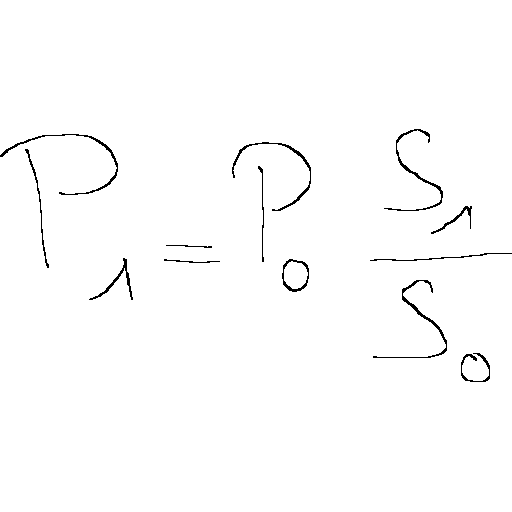 P_1 = P_0 \frac{S_1}{S_0}